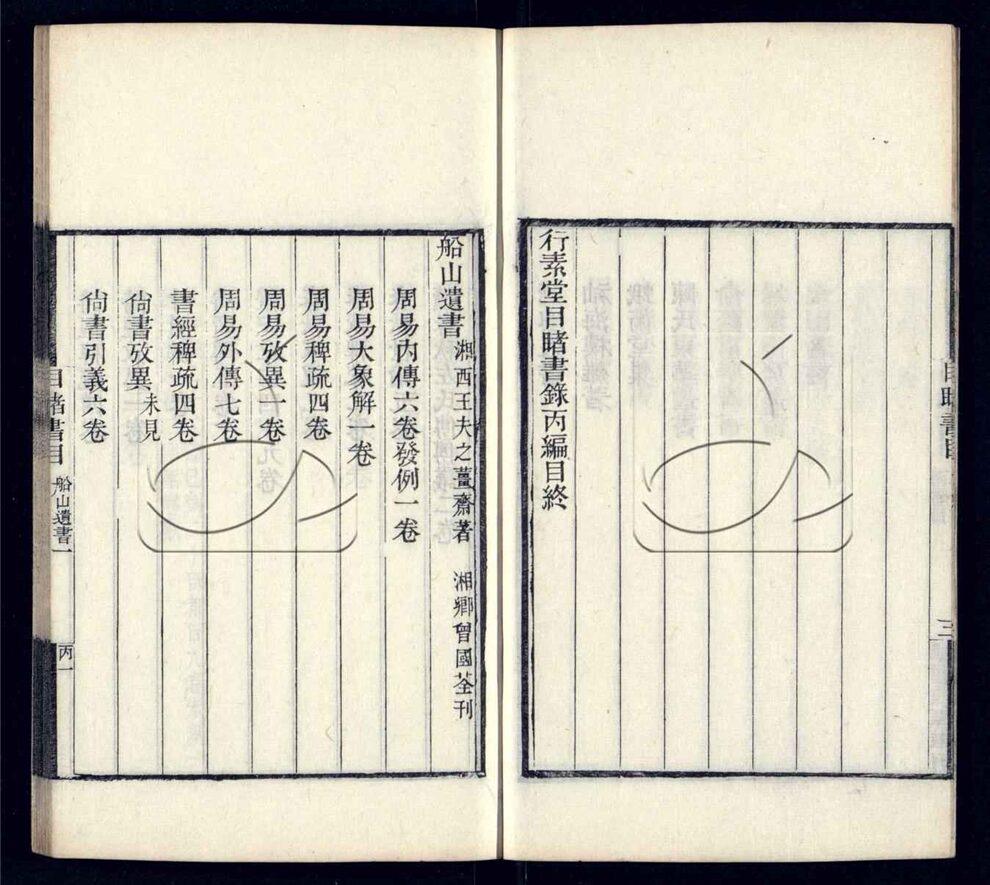 行素堂目睹書錄丙編目終
目睹書目
三
船山遺書 湘西王夫之薑齋著 湘鄉曾國荃刊
周易內傳六卷發例一卷
周易大象解一卷
周易稗疏四卷
周易攷異一卷
周易外傳七卷
書經稗疏四卷
尙書攷異 未見
尙書引義六卷
目睹書目 船山遺書一 丙一